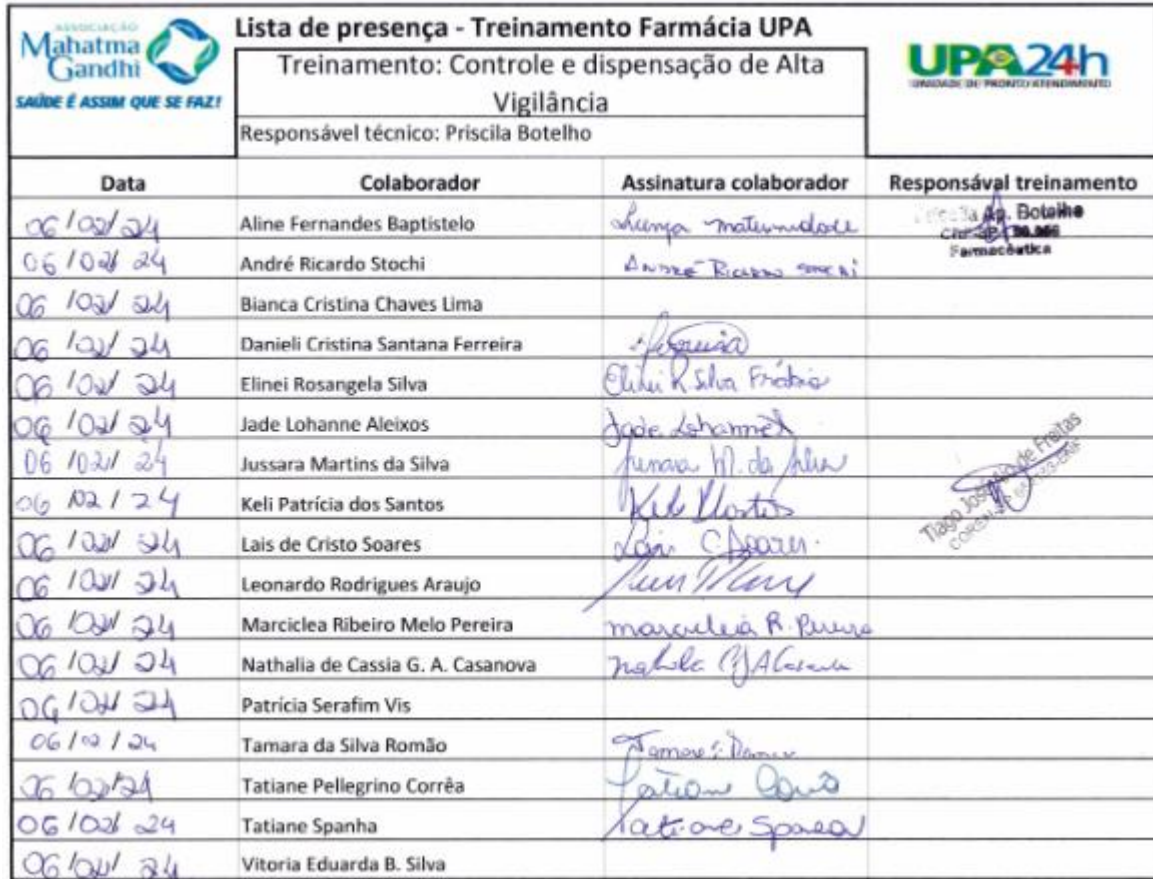 ASSOCIAÇÃO
Mahatma
Gandhi
SAÚDE É ASSIM QUE SE FAZ!
Lista de presença - Treinamento Farmácia UPA
Treinamento: Controle e dispensação de Alta
Vigilância
Responsável técnico: Priscila Botelho
UPA24h
UNIDADE DE PRONTO ATENDIMENTO
Data Colaborador Assinatura colaborador Responsával treinamento
06/02/24 Aline Fernandes Baptistelo maternidade
Ap. Botelho
Farmacêutica
06/02/24 André Ricardo Stochi André Ricardo Stochi
06/02/24 Bianca Cristina Chaves Lima
06/02/24 Danieli Cristina Santana Ferreira
06/02/24 Elinei Rosangela Silva Elinei R. Silva
06/02/24 Jade Lohanne Aleixos Jade Lohanne
06/02/24 Jussara Martins da Silva Jussara M. da Silva
Tiago José de Freitas
06/02/24 Keli Patrícia dos Santos
06/02/24 Lais de Cristo Soares Lais C. Soares.
06/02/24 Leonardo Rodrigues Araujo
06/02/24 Marciclea Ribeiro Melo Pereira marciclea R. Pereira
06/02/24 Nathalia de Cassia G. A. Casanova
06/02/24 Patrícia Serafim Vis
06/02/24 Tamara da Silva Romão
06/02/24 Tatiane Pellegrino Corrêa Tatiane
06/02/24 Tatiane Spanha Tatiane
06/02/24 Vitoria Eduarda B. Silva